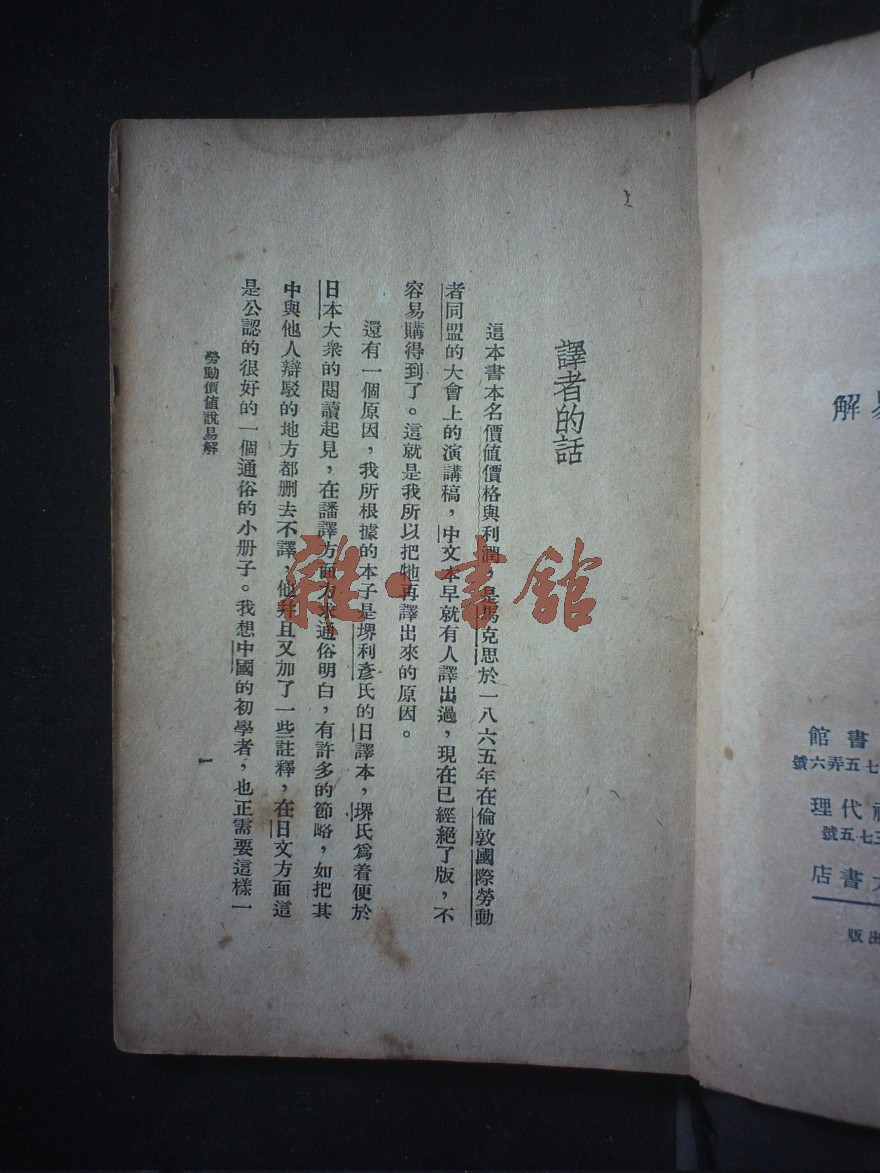 解
書館
七五弄六號
代理
三七五號
書店
出版
譯者的話
這本書本名價值價格與利潤，是馬克思於一八六五年在倫敦國際勞動
者同盟的大會上的演講稿，中文本早就有人譯出過，現在已經絕了版，不
容易購得到了。這就是我所以把牠再譯出來的原因。
還有一個原因，我所根據的本子是堺利彥氏的日譯本，堺氏爲着便於
日本大衆的閱讀起見，在譒譯方面力求通俗明白，有許多的節略，如把其
中與他人辯駁的地方都删去不譯，他幷且又加了一些註釋，在日文方面這
是公認的很好的一個通俗的小册子。我想中國的初學者，也正需要這樣一
勞動價值說易解
一
雜·書館